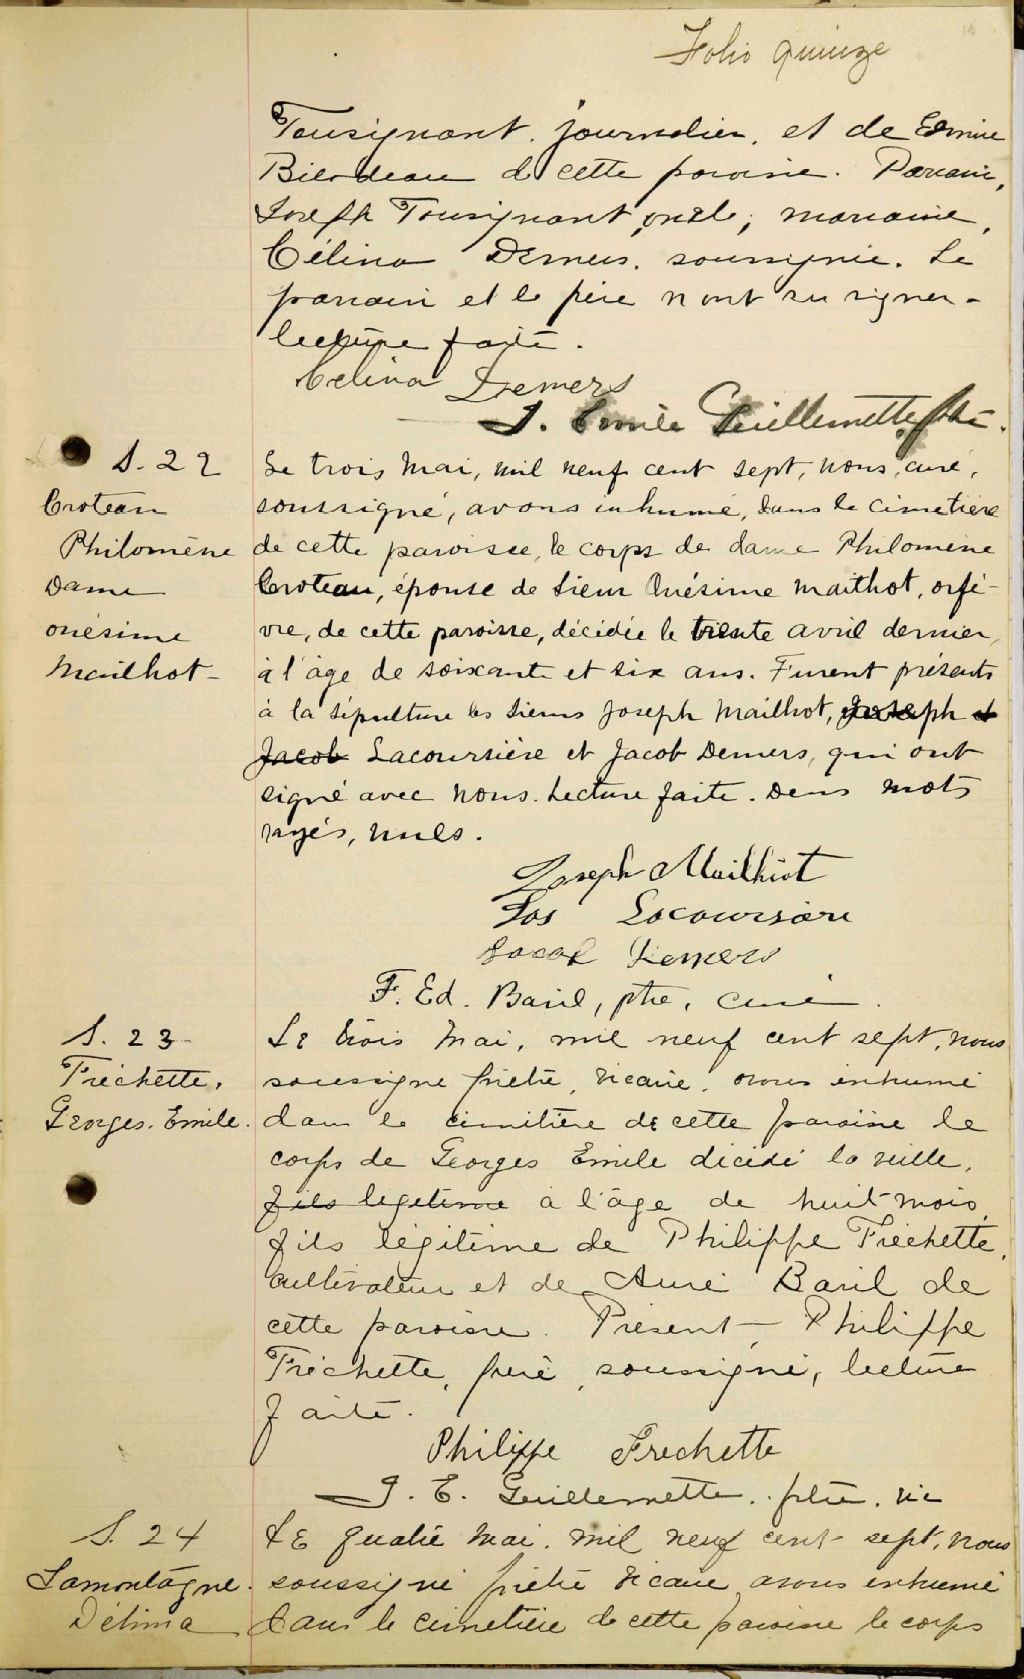 Folio quinze
Tousignant, journalier, et de Edmire
Bilodeau de cette paroisse. Parrain,
Joseph Tousignant, oncle; marraine,
Célina Demers, soussignée. Le
parrain et le père n'ont su signer -
lecture faite.
Celina Demers
J. Emile Guillemette ptre.
S. 22
Croteau
Philomène
Dame
onésime
Mailhot -
Le trois Mai, mil neuf cent sept, nous, curé,
soussigné, avons inhumé, dans le cimetière
de cette paroisse, le corps de dame Philomène
Croteau, épouse de Sieur Onésime Mailhot, orfè-
vre, de cette paroisse, décédée le trente avril dernier,
à l'âge de soixante et six ans. Furent présents
à la sépulture les Sieurs Joseph Mailhot, Joseph et
Jacob Lacoursière et Jacob Demers, qui ont
signé avec nous. Lecture faite. Deux mots
rayés, nuls.
Joseph Mailhiot
Jos Lacoursière
Jacob Demers
F. Ed. Baril, ptre, curé.
S. 23
Fréchette,
Georges. Emile.
Le trois Mai, mil neuf cent sept, nous
soussigné prêtre, vicaire, avons inhumé
dans le cimitière de cette paroisse le
corps de Georges Emile décédé la veille,
fils légitime à l'âge de huit mois,
fils légitime de Philippe Fréchette,
cultivateur et de Baril de
cette paroisse. Présent - Philippe
Fréchette, père, soussigné, lecture
faite.
Philippe Frechette
J. E. Guillemette. ptre. vic
S. 24
Lamontagne
Délima
Le quatre Mai. mil neuf cent sept, nous
soussigné prêtre vicaire avons inhumé
dans le cimetière de cette paroisse le corps